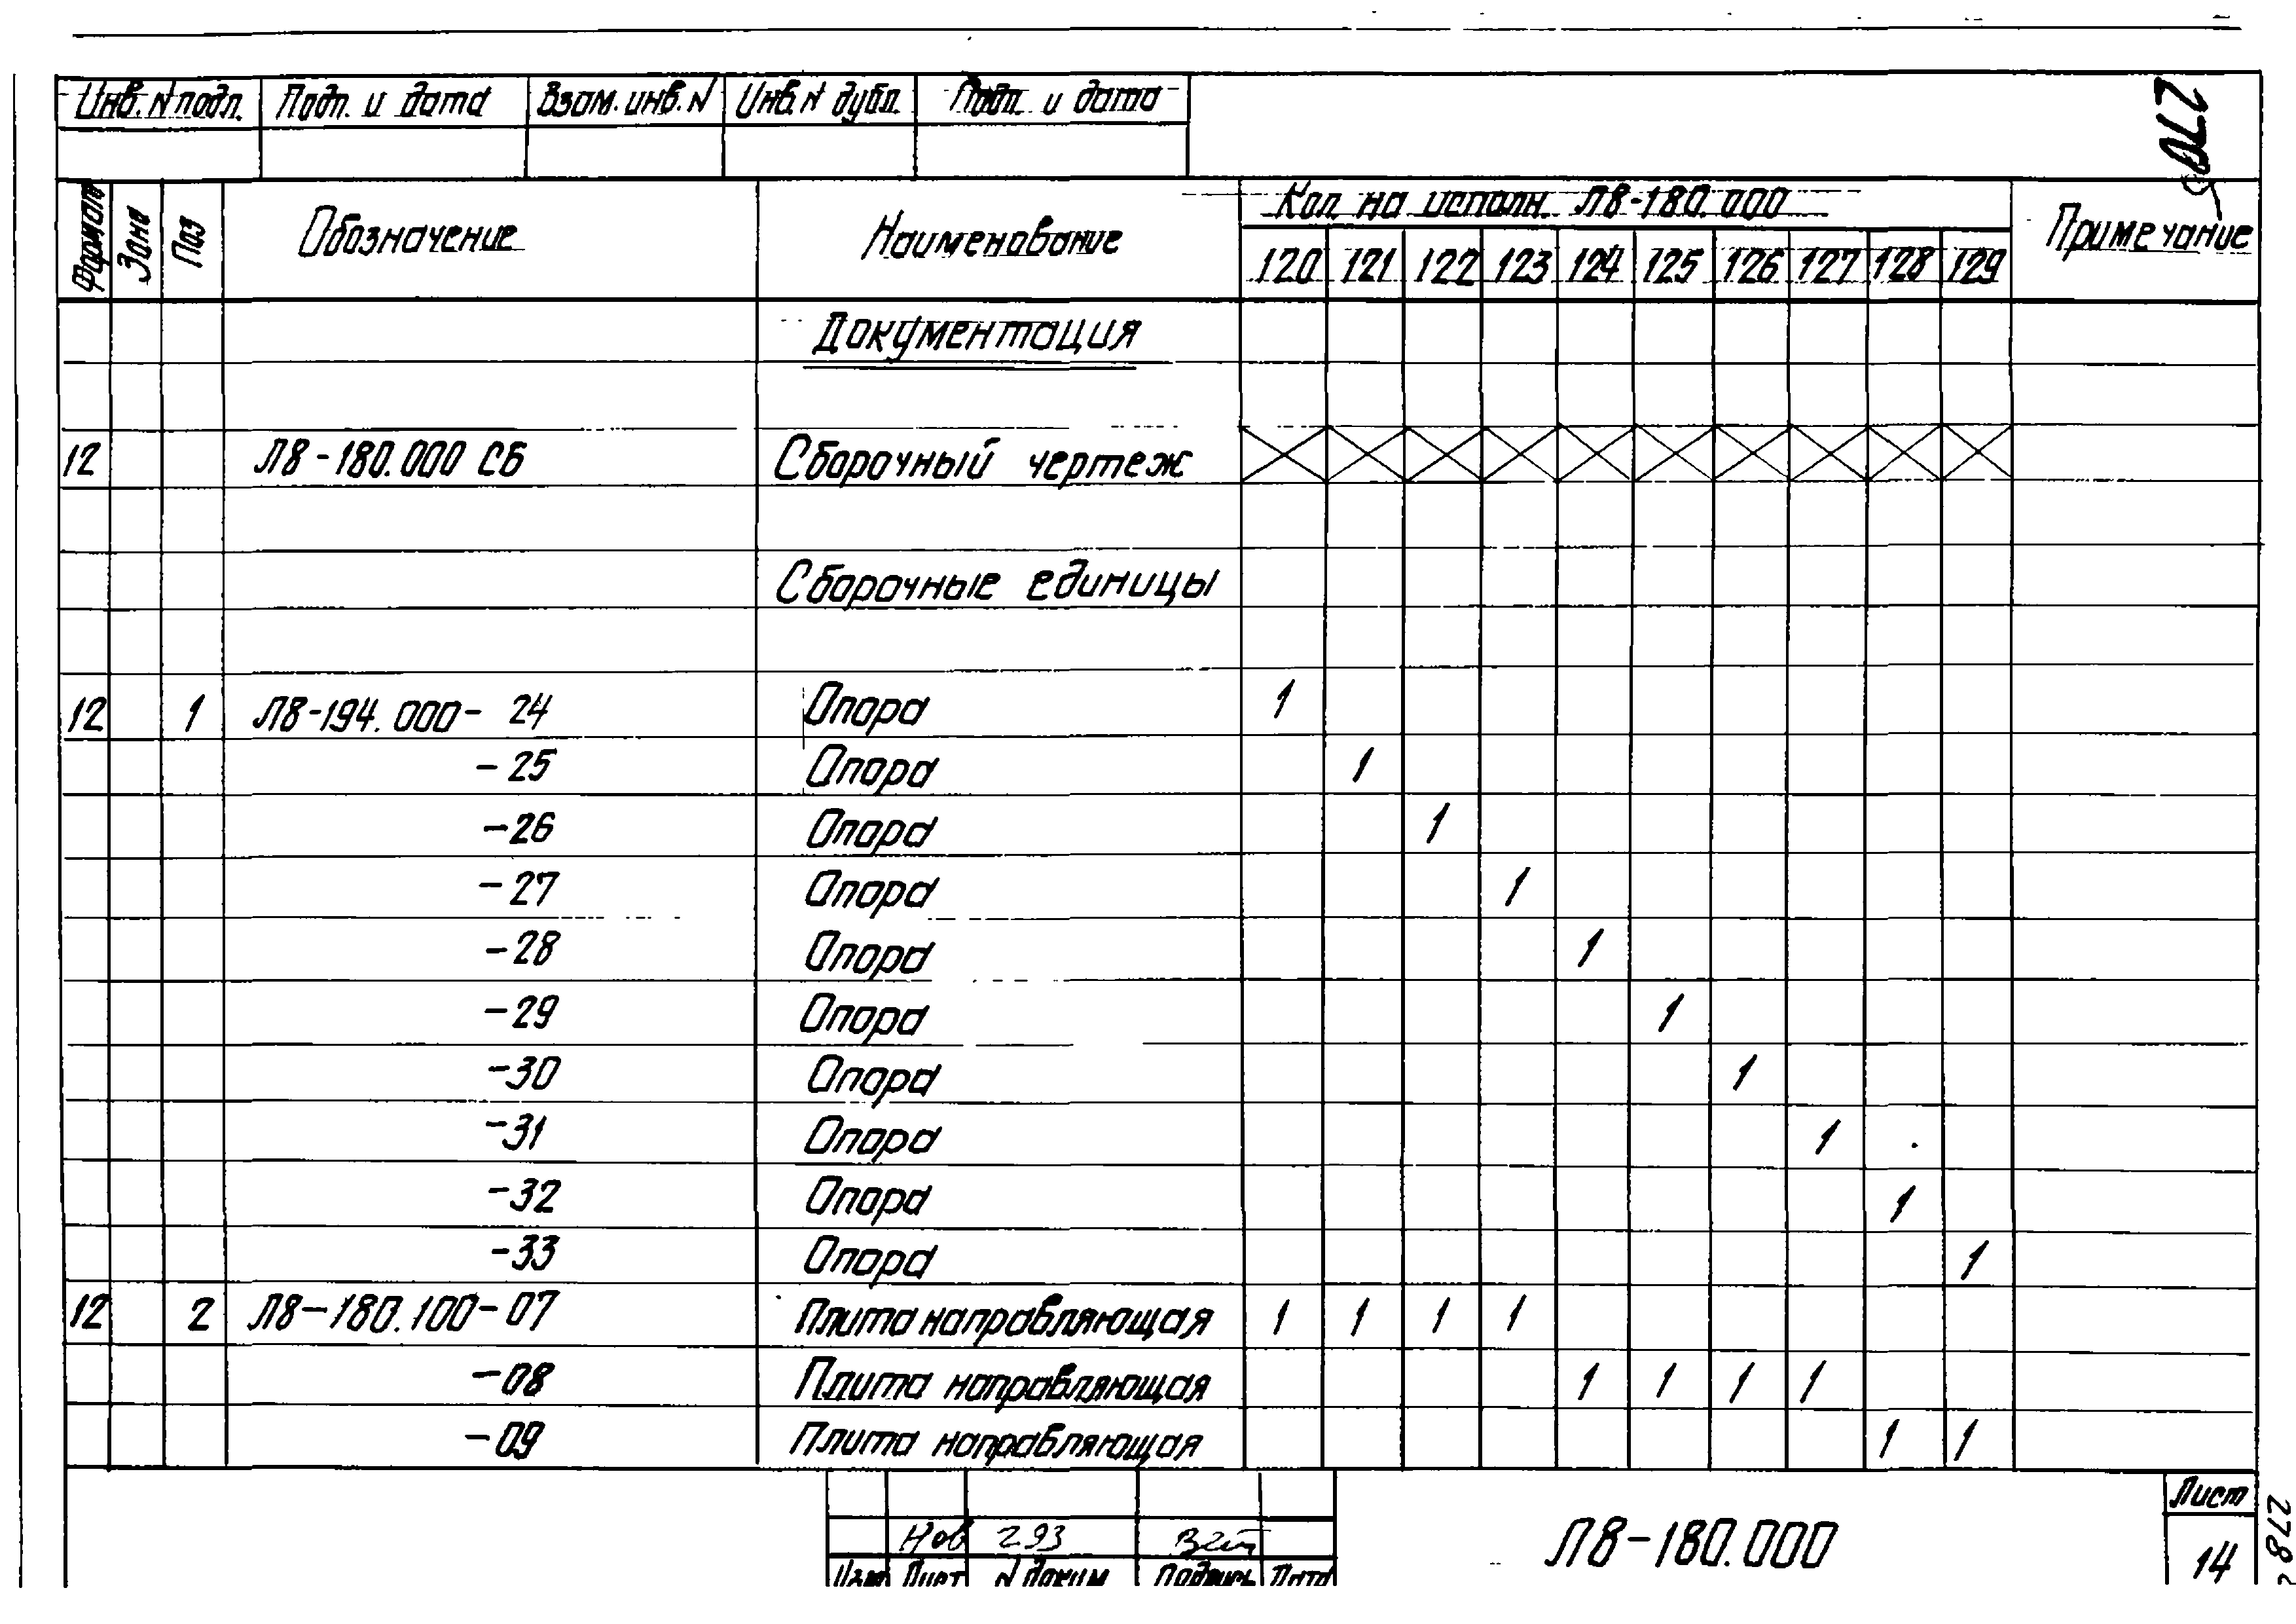 Инв. N подл. Подп. и дата Взам. инв. N Инв. N дубл. Подп. и дата
270
Формат Зона Поз Обозначение Наименование Кол. на исполн. Л8-180.000 Примечание
120 121 122 123 124 125 126 127 128 129
Документация
12 Л8-180.000 СБ Сборочный чертеж
Сборочные единицы
12 1 Л8-194.000-24 Опора 1
-25 Опора 1
-26 Опора 1
-27 Опора 1
-28 Опора 1
-29 Опора 1
-30 Опора 1
-31 Опора 1
-32 Опора 1
-33 Опора 1
12 2 Л8-180.100-07 Плита направляющая 1 1 1 1
-08 Плита направляющая 1 1 1 1
-09 Плита направляющая 1 1
Нов 293
Изм Лист N докум Подпись Дата
Л8-180.000
Лист
14
278